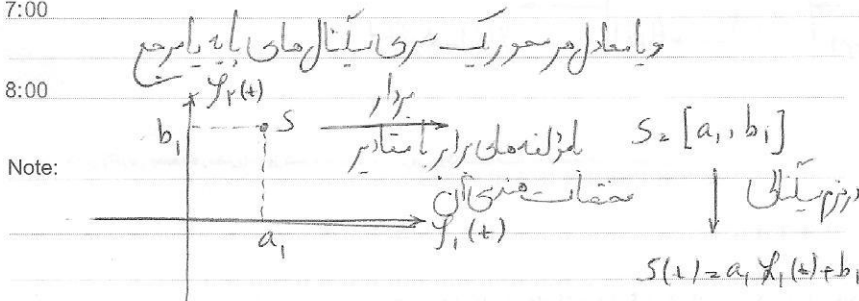 7:00
و یا معادل هر محور یک سری سیگنال های پایه یا مرجع
8:00
φ₂(t)
b₁
S
بردار
S = [a₁, b₁]
Note:
با مؤلفه های برابر با مقادیر
مختصات هندسی آن
در فرم سیگنالی
a₁
φ₁(t)
S(t) = a₁ φ₁(t) + b₁